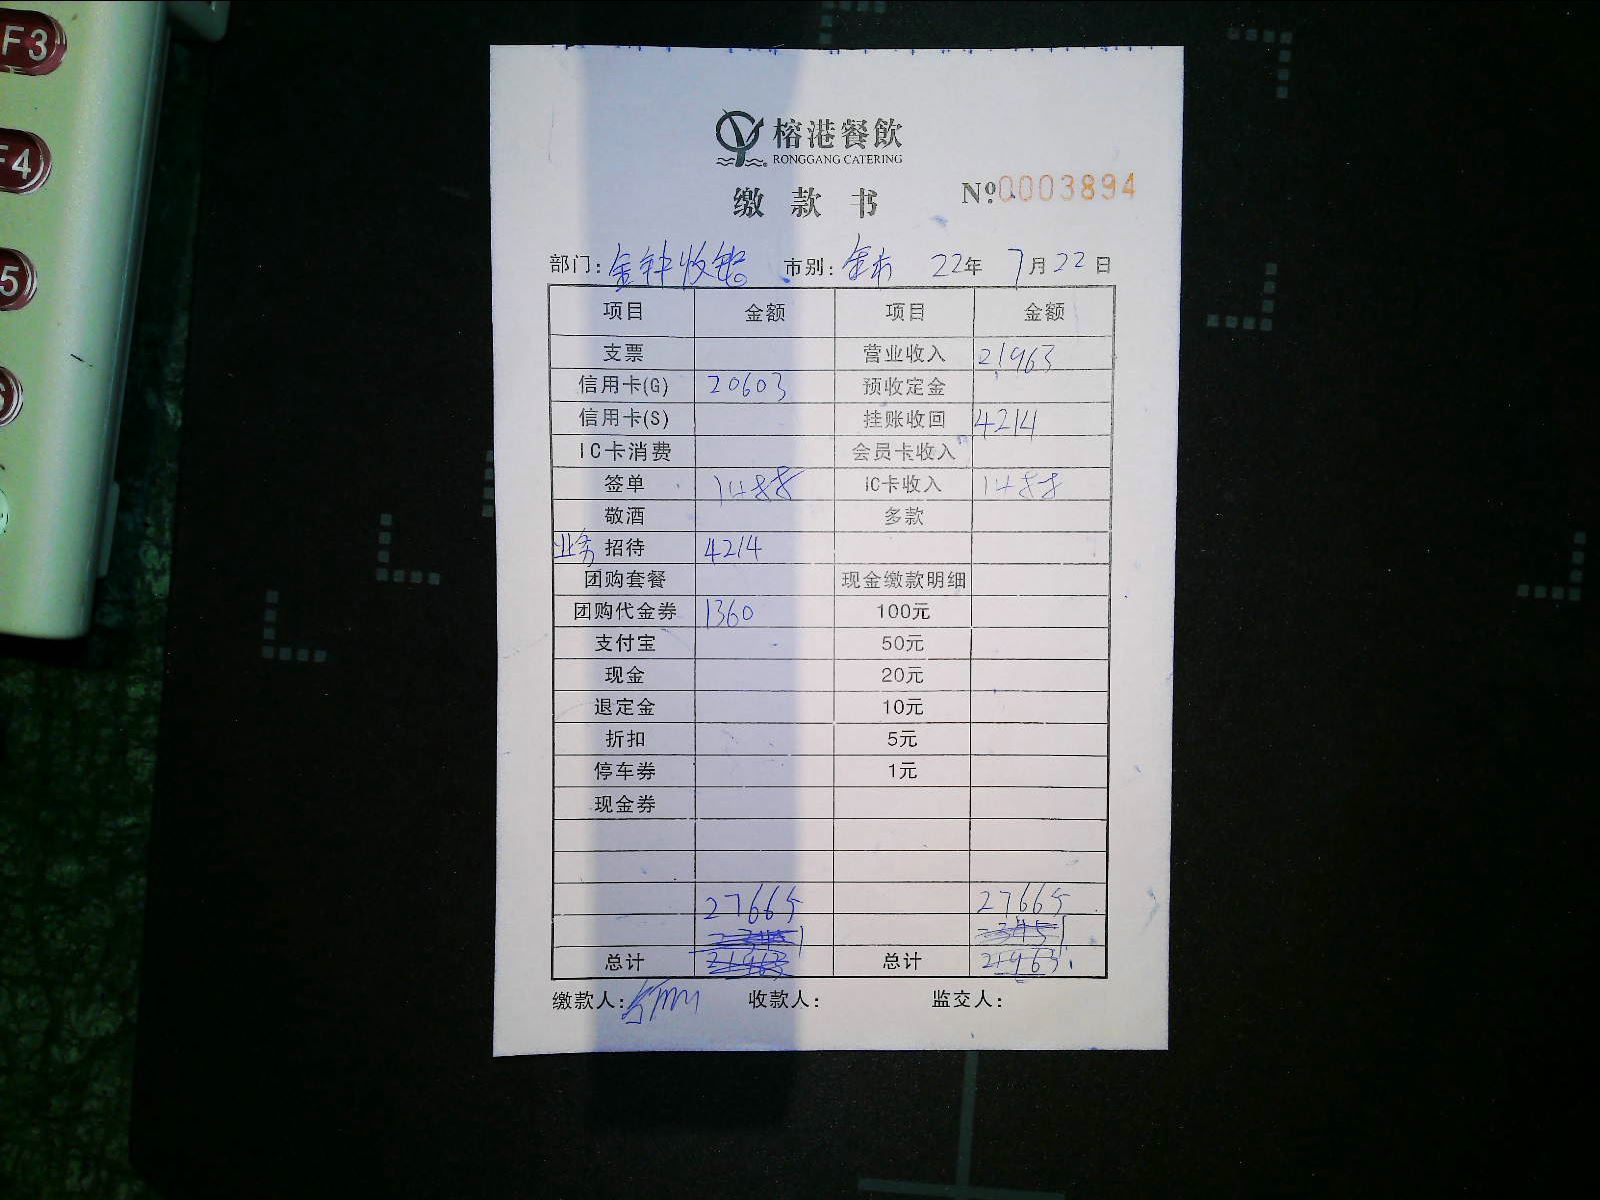 F3
F4
5
榕港餐飲
RONGGANG CATERING
缴款书 Nº:0003894
部门:金钟收银 市别:全市 22年7月22日
项目 金额 项目 金额
支票 营业收入 21963
信用卡(G) 20603 预收定金
信用卡(S) 挂账收回 4214
IC卡消费 会员卡收入
签单 1488 IC卡收入 1488
敬酒 多款
业务招待 4214
团购套餐 现金缴款明细
团购代金券 1360 100元
支付宝 50元
现金 20元
退定金 10元
折扣 5元
停车券 1元
现金券
27665 27665
23451 23451
总计 21963 总计 21963
缴款人: 收款人: 监交人: